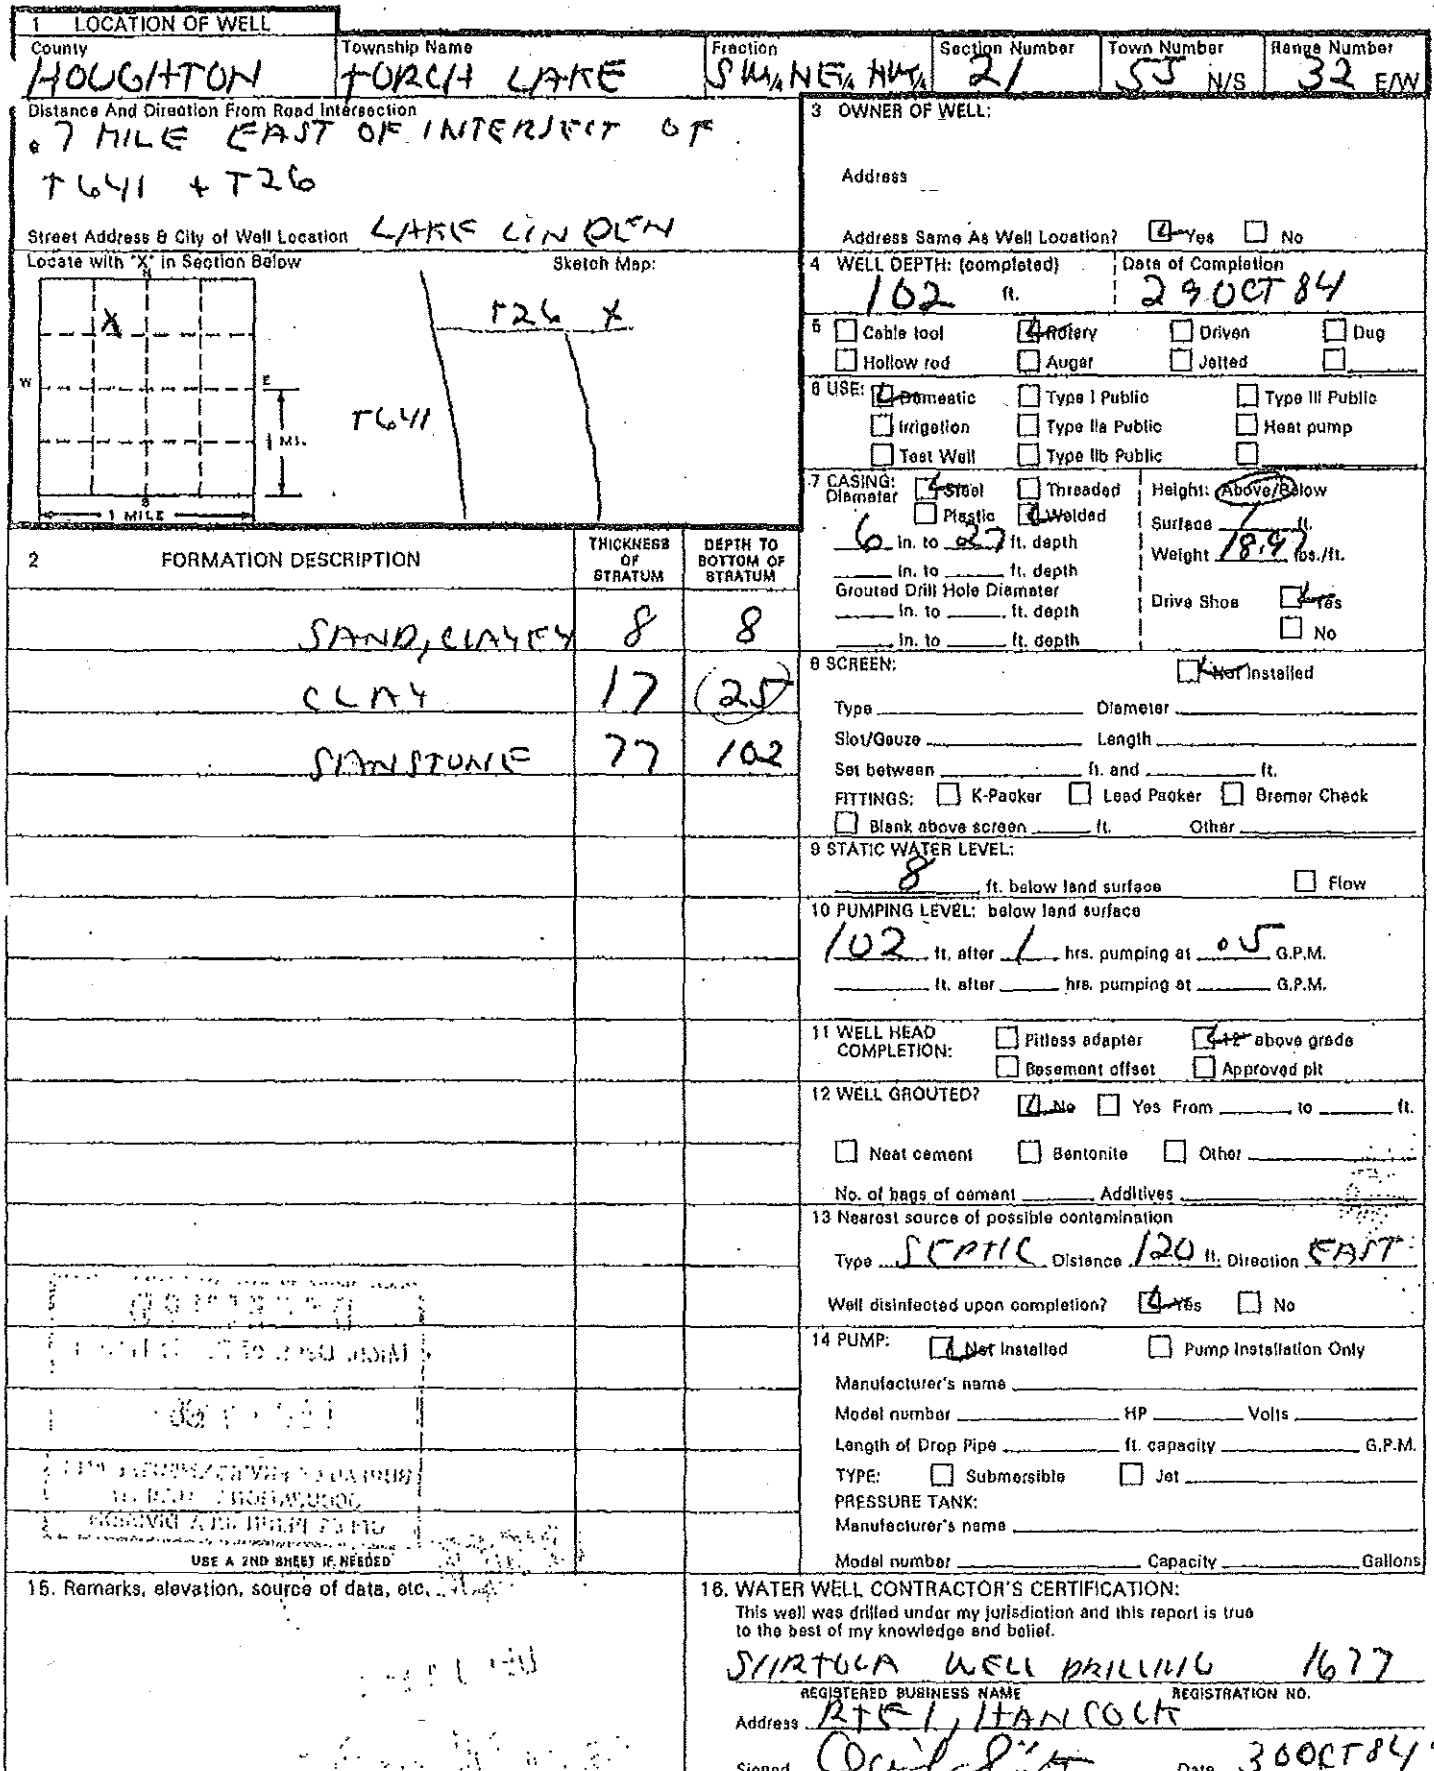 1 LOCATION OF WELL
County Township Name Fraction Section Number Town Number Range Number
HOUGHTON TORCH LAKE SW¼ NE¼ NW¼ 21 55 N/S 32 E/W
Distance And Direction From Road Intersection
.7 MILE EAST OF INTERSECT OF
T641 + T26
Street Address & City of Well Location LAKE LINDEN
Locate with "X" in Section Below Sketch Map:
N
X
W E
S
1 MI.
1 MILE
T26 X
T641
3 OWNER OF WELL:
Address
Address Same As Well Location? Yes No
4 WELL DEPTH: (completed) Date of Completion
102 ft. 29 OCT 84
5 Cable tool Rotary Driven Dug
Hollow rod Auger Jetted
6 USE: Domestic Type I Public Type III Public
Irrigation Type IIa Public Heat pump
Test Well Type IIb Public
7 CASING: Steel Threaded Height: Above/Below
Diameter Plastic Welded Surface 1 ft.
6 in. to 27 ft. depth Weight 18.97 lbs./ft.
in. to ft. depth
Grouted Drill Hole Diameter Drive Shoe Yes
in. to ft. depth No
in. to ft. depth
2 FORMATION DESCRIPTION THICKNESS OF STRATUM DEPTH TO BOTTOM OF STRATUM
SAND, CLAYEY 8 8
CLAY 17 (25)
SANSTONE 77 102
8 SCREEN: Not Installed
Type Diameter
Slot/Gauze Length
Set between ft. and ft.
FITTINGS: K-Packer Lead Packer Bremer Check
Blank above screen ft. Other
9 STATIC WATER LEVEL:
8 ft. below land surface Flow
10 PUMPING LEVEL: below land surface
102 ft. after 1 hrs. pumping at .5 G.P.M.
ft. after hrs. pumping at G.P.M.
11 WELL HEAD COMPLETION: Pitless adapter 12" above grade
Basement offset Approved pit
12 WELL GROUTED? No Yes From to ft.
Neat cement Bentonite Other
No. of bags of cement Additives
13 Nearest source of possible contamination
Type SEPTIC Distance 120 ft. Direction EAST
Well disinfected upon completion? Yes No
14 PUMP: Not Installed Pump Installation Only
Manufacturer's name
Model number HP Volts
Length of Drop Pipe ft. capacity G.P.M.
TYPE: Submersible Jet
PRESSURE TANK:
Manufacturer's name
Model number Capacity Gallons
USE A 2ND SHEET IF NEEDED
15. Remarks, elevation, source of data, etc.
16. WATER WELL CONTRACTOR'S CERTIFICATION:
This well was drilled under my jurisdiction and this report is true
to the best of my knowledge and belief.
SIIRTOLA WELL DRILLING 1677
REGISTERED BUSINESS NAME REGISTRATION NO.
Address RTE 1, HANCOCK
Signed Date 30 OCT 84